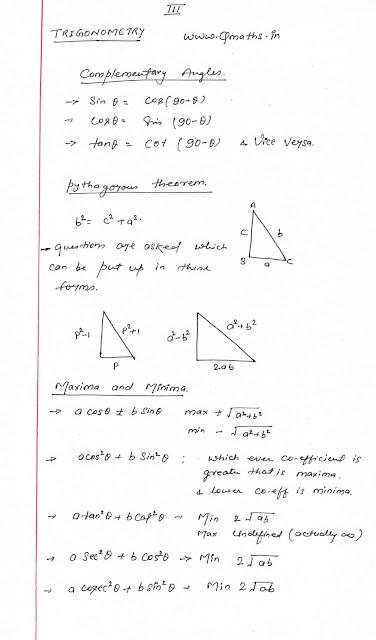 III
TRIGONOMETRY www.cgmaths.in
Complementary Angles.
→ Sin θ = Cos(90-θ)
→ Cosθ = Sin (90-θ)
→ tanθ = Cot (90-θ) & Vice Versa.
pythagorous theorem.
b² = c² + a².
→ questions are asked which
can be put up in these
forms.
A
c b
B a C
p²-1 p²+1
p
a²-b² a²+b²
2ab
Maxima and Minima.
→ a cosθ ± b sinθ max + √a²+b²
min - √a²+b²
→ acos²θ + b Sin²θ : which ever co-efficient is
greater that is maxima.
& lower co-eff is minima.
→ a tan²θ + b Cot²θ → Min 2√ab
Max Undefined (actually ∞)
→ a Sec²θ + b Cos²θ → Min 2√ab
→ a cosec²θ + b sin²θ → Min 2√ab